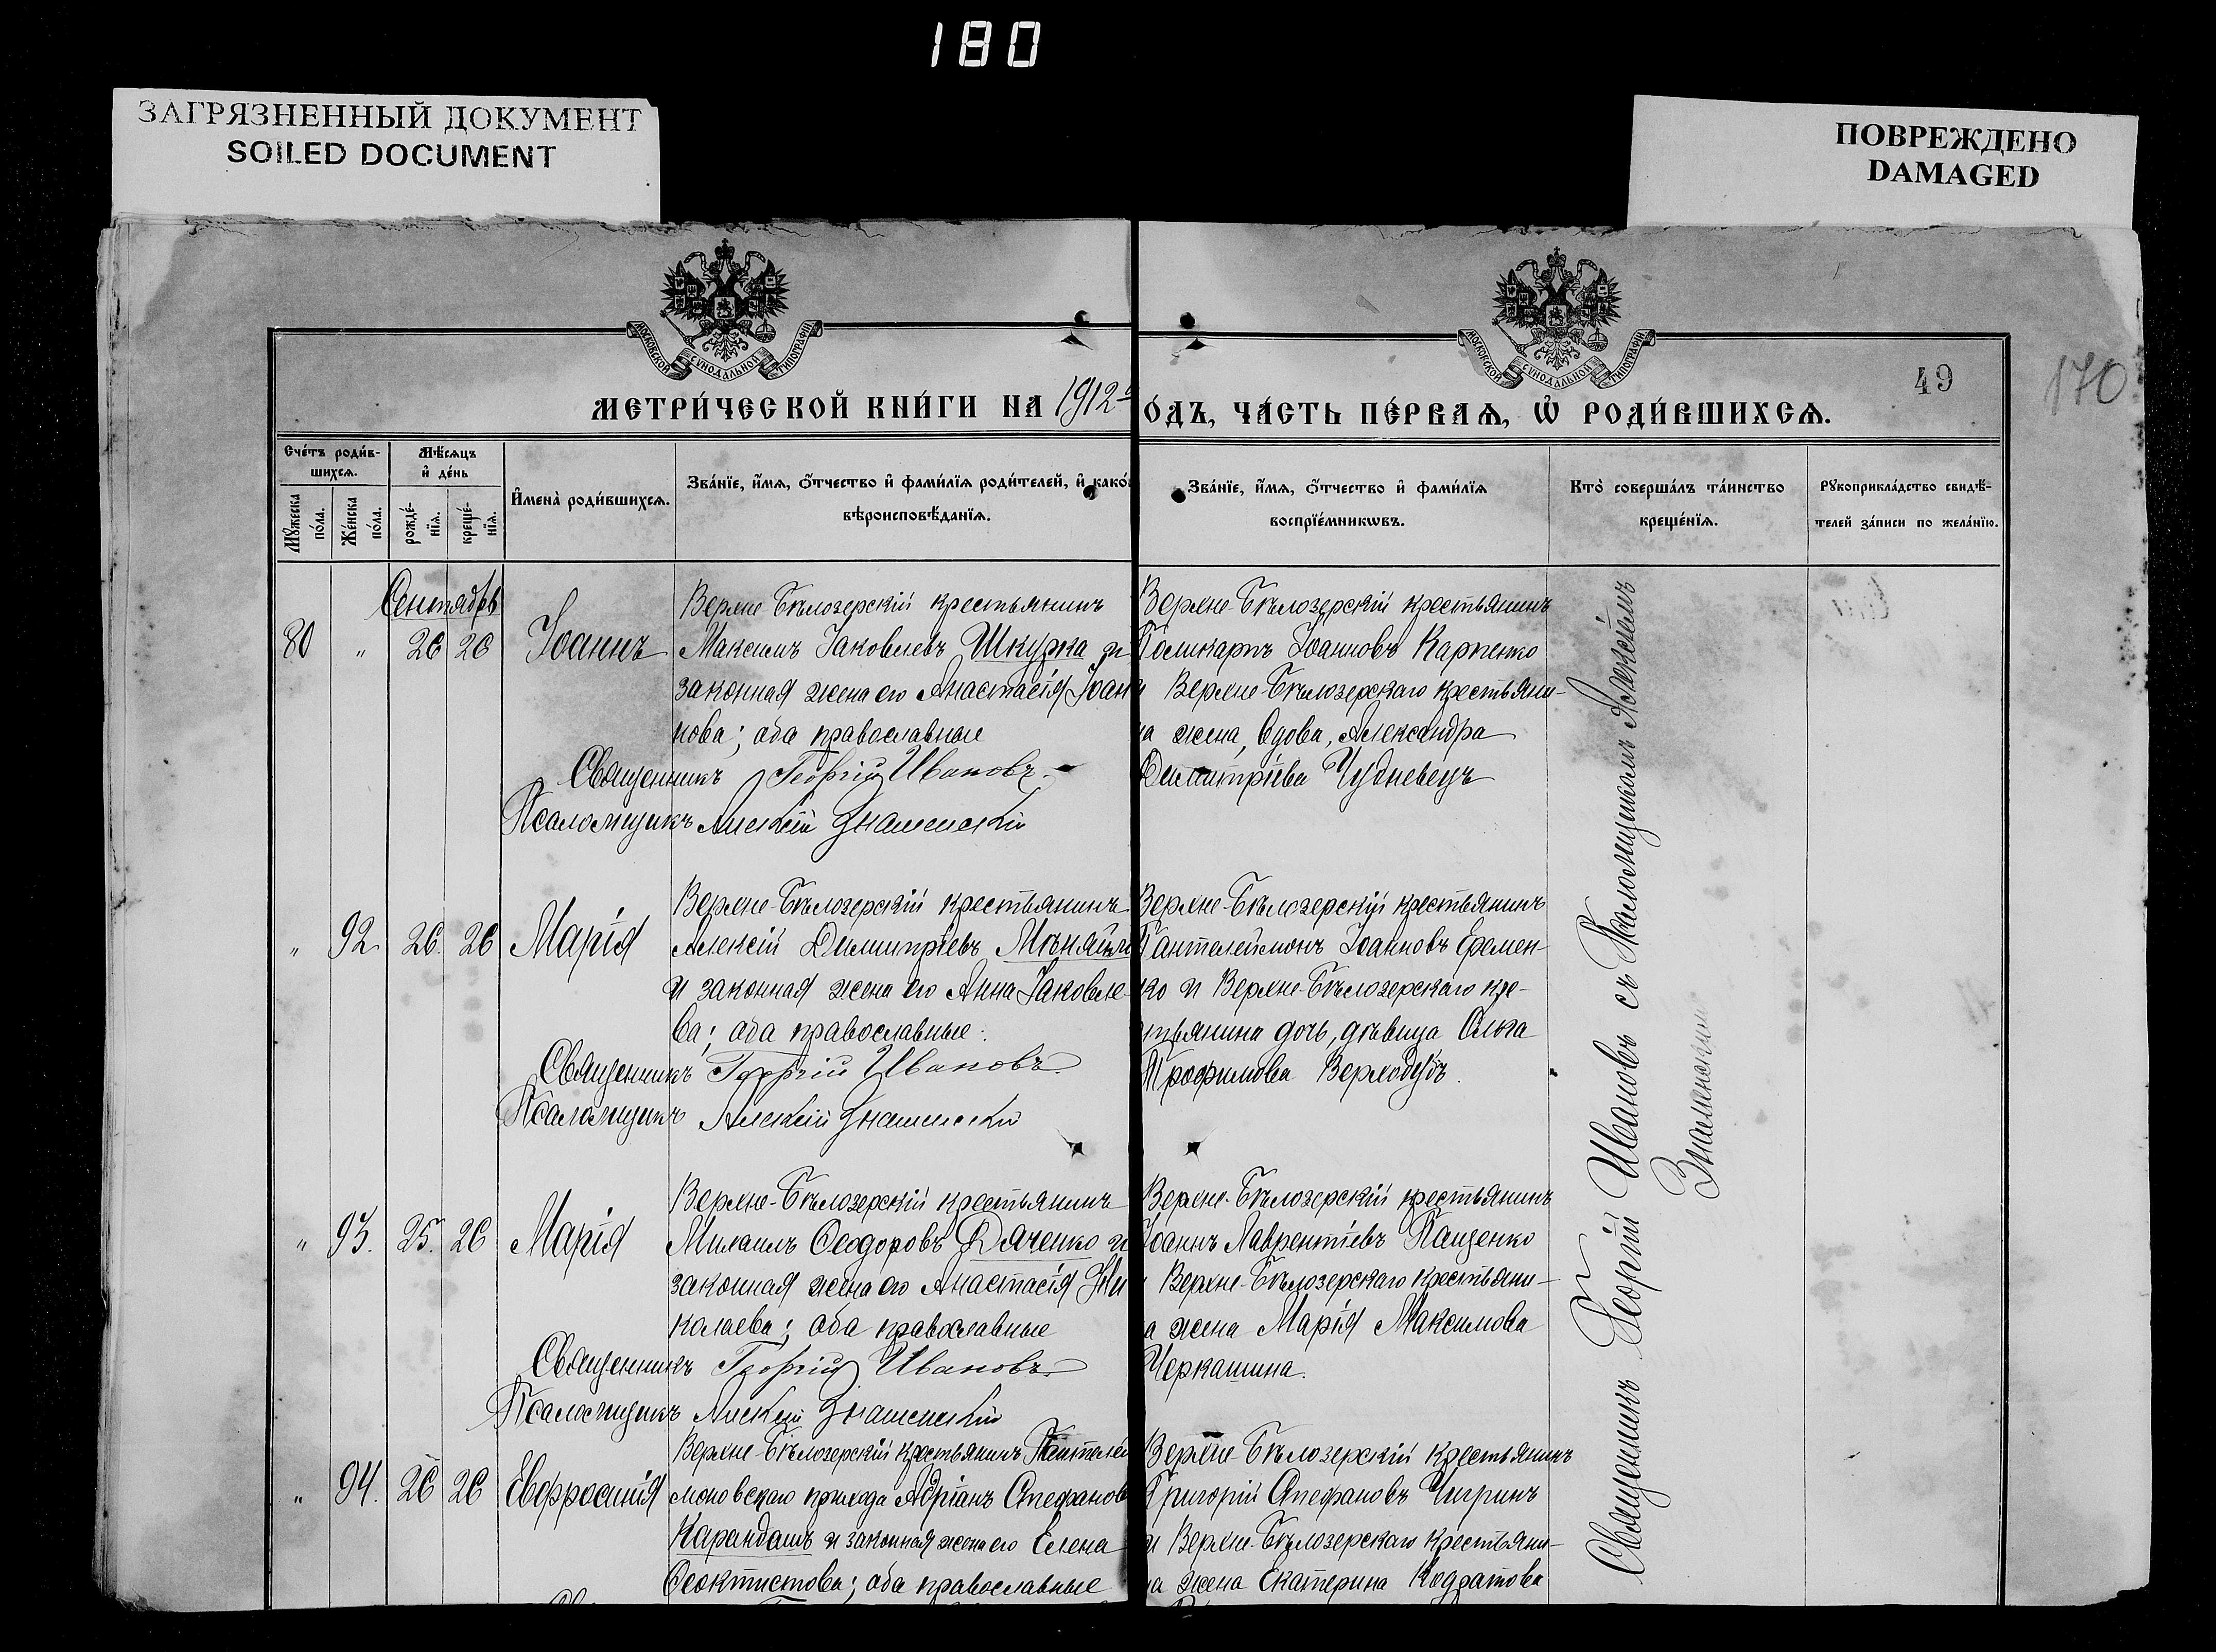 180
ЗАГРЯЗНЕННЫЙ ДОКУМЕНТ
SOILED DOCUMENT
ПОВРЕЖДЕНО
DAMAGED
МОСКОВСКОЙ СУНОДАЛЬНОЙ ТИПОГРАФІИ
МОСКОВСКОЙ СУНОДАЛЬНОЙ ТИПОГРАФІИ
49
170
МЕТРИ́ЧЕСКОЙ КНИ́ГИ НА 1912 О́ДЪ, ЧА́СТЬ ПЕ́РВАѦ, Ѡ҆ РОДИ́ВШИХСѦ.
Сче́тъ роди́в-
шихсѧ.
Мѣ́сѧцъ
и҆ де́нь
Мꙋ́жеска
по́ла.
Же́нска
по́ла.
рожде́-
нїѧ.
креще́-
нїѧ.
И҆мена̀ роди́вшихсѧ.
Зва́нїе, и҆́мѧ, ѻ҆́тчество и҆ фами́лїѧ роди́телей, и҆ како́
вѣроисповѣ́данїѧ.
Зва́нїе, и҆́мѧ, ѻ҆́тчество и҆ фами́лїѧ
воспрїе́мникѡвъ.
Кто̀ соверша́лъ та́инство
креще́нїѧ.
Рꙋкоприкла́дство свидѣ́-
телей за́писи по жела́нїю.
Сентябрь
80 " 26 26 Іоаннъ
Верхне-Бѣлозерскій крестьянинъ
Максимъ Іаковлевъ Шкурка и
законная жена его Анастасія Іоан
нова; оба православные
Священникъ Георгій Ивановъ
Псаломщикъ Алексій Знаменскій
Верхне-Бѣлозерскій крестьянинъ
Поликарпъ Іоанновъ Карпенко
и Верхне-Бѣлозерскаго крестьяни-
на жена, вдова, Александра
Димитріева Чудневецъ
" 92 26. 26 Марія
Верхне-Бѣлозерскій крестьянинъ
Алексій Димитріевъ
и законная жена его Анна Іаковле-
ва; оба православные.
Священникъ Георгій Ивановъ
Псаломщикъ Алексій Знаменскій
Верхне-Бѣлозерскій крестьянинъ
Пантелеймонъ Іоанновъ Еремен-
ко и Верхне-Бѣлозерскаго кре-
стьянина дочь, дѣвица Ольга
Трофимова Верходубъ.
" 93. 25. 26 Марія
Верхне-Бѣлозерскій крестьянинъ
Михаилъ Ѳеодоровъ Дяченко и
законная жена его Анастасія Ни
колаева; оба православные
Священникъ Георгій Ивановъ
Псаломщикъ Алексій Знаменскій
Верхне-Бѣлозерскій крестьянинъ
Іоаннъ Лаврентіевъ Пащенко
и Верхне-Бѣлозерскаго крестьяни-
на жена Марія Максимова
Черкашина.
" 94. 26 26 Евфросинія
Верхне-Бѣлозерскій крестьянинъ Пантелей
моновскаго прихода Адріанъ Стефановъ
Карандашъ и законная жена его Елена
Ѳеоктистова; оба православные
Верхне-Бѣлозерскій крестьянинъ
Григорій Стефановъ Чигринъ
и Верхне-Бѣлозерскаго крестьяни-
на жена Екатерина Кодратова
Священникъ Георгій Ивановъ съ Псаломщикомъ Алексіемъ
Знаменскимъ